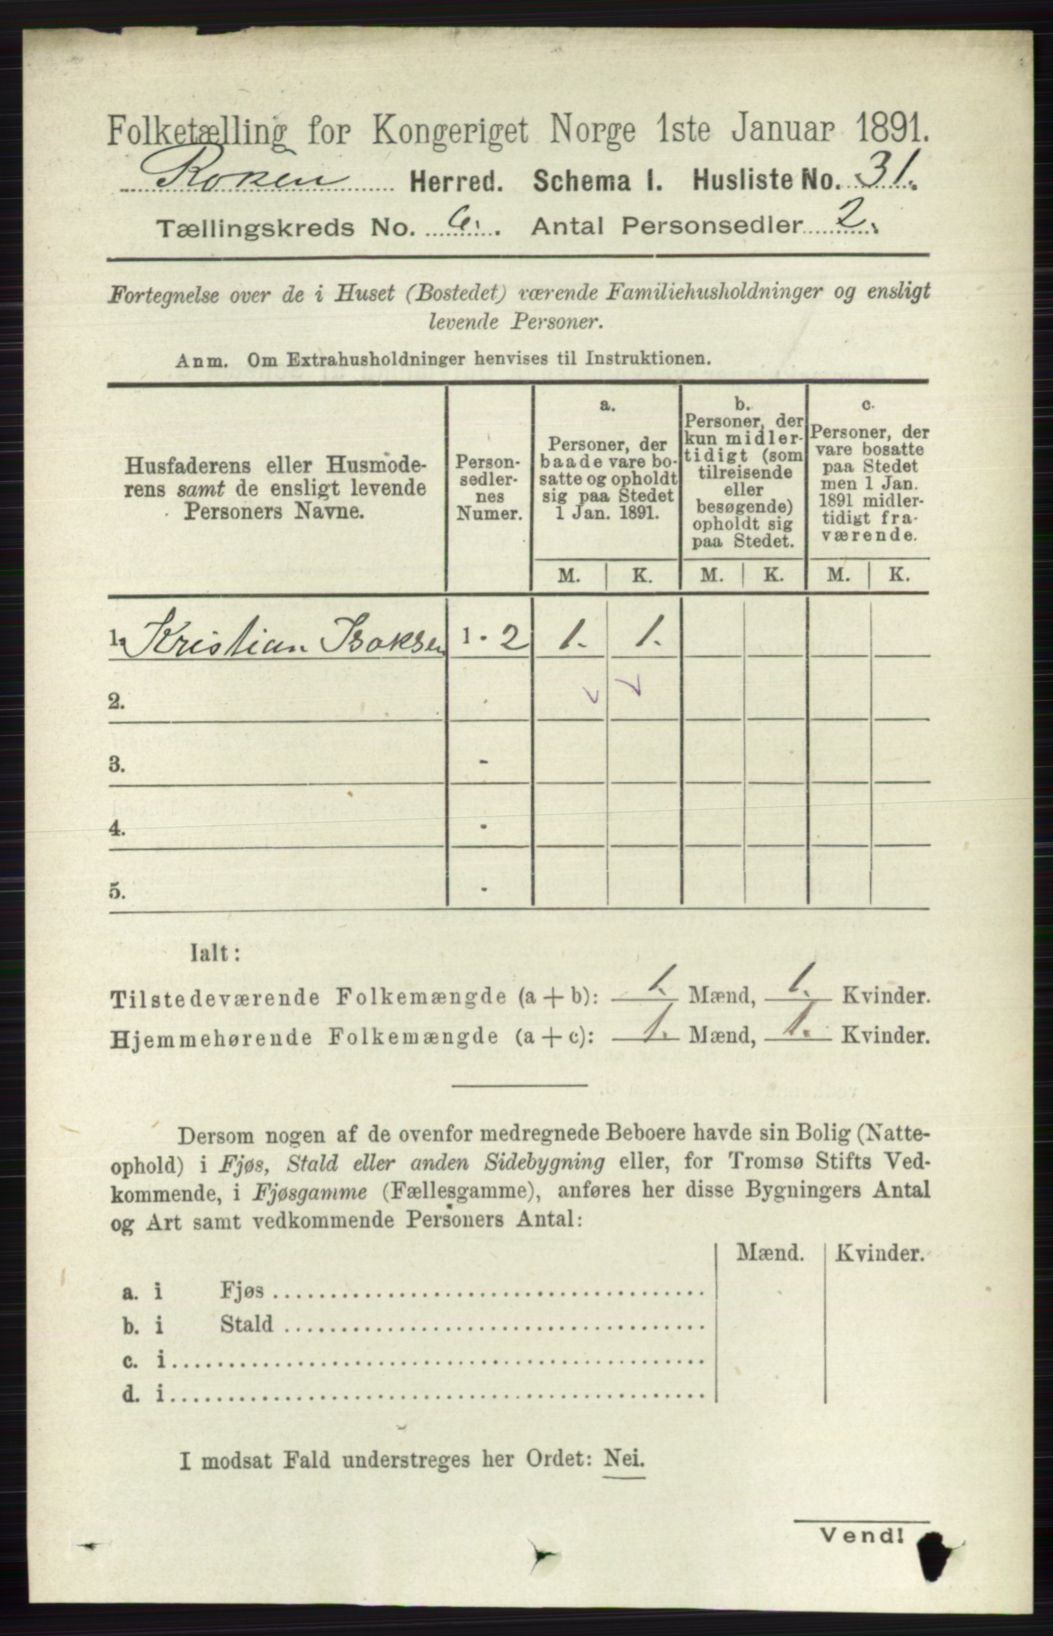 Folketælling for Kongeriget Norge 1ste Januar 1891.
Røken Herred. Schema I. Husliste No. 31.
Tællingskreds No. 6. Antal Personsedler 2.
Fortegnelse over de i Huset (Bostedet) værende Familiehusholdninger og ensligt
levende Personer.
Anm. Om Extrahusholdninger henvises til Instruktionen.
Husfaderens eller Husmode-
rens samt de ensligt levende
Personers Navne.
Person-
sedler-
nes
Numer.
a.
Personer, der
baade vare bo-
satte og opholdt
sig paa Stedet
1 Jan. 1891.
b.
Personer, der
kun midler-
tidigt (som
tilreisende
eller
besøgende)
opholdt sig
paa Stedet.
c.
Personer, der
vare bosatte
paa Stedet
men 1 Jan.
1891 midler-
tidigt fra-
værende.
M. K. M. K. M. K.
1. Kristian Isaksen 1 - 2 1. 1.
2. -
3. -
4. -
5. -
Ialt:
Tilstedeværende Folkemængde (a + b): 1. Mænd, 1. Kvinder.
Hjemmehørende Folkemængde (a + c): 1. Mænd, 1. Kvinder.
Dersom nogen af de ovenfor medregnede Beboere havde sin Bolig (Natte-
ophold) i Fjøs, Stald eller anden Sidebygning eller, for Tromsø Stifts Ved-
kommende, i Fjøsgamme (Fællesgamme), anføres her disse Bygningers Antal
og Art samt vedkommende Personers Antal:
Mænd. Kvinder.
a. i Fjøs
b. i Stald
c. i
d. i
I modsat Fald understreges her Ordet: Nei.
Vend!